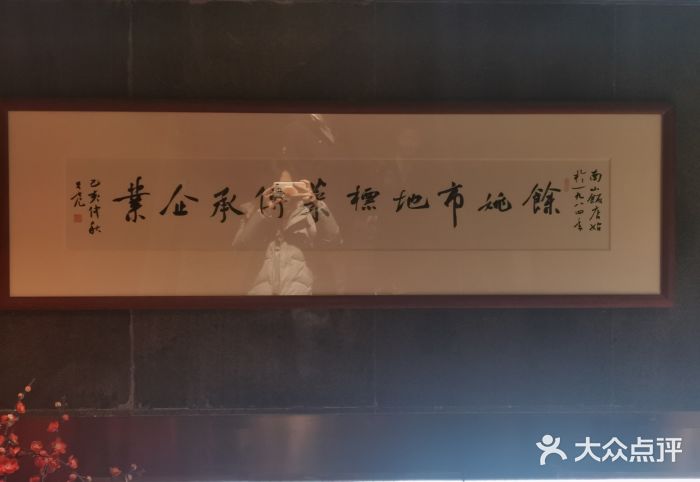 南山飯店始
於一九八四年
餘姚市地標菜傳承企業
己亥仲秋
大众点评